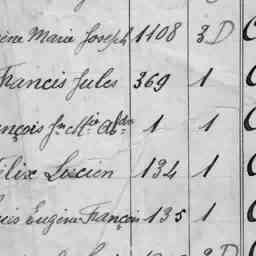 ène Marie Joseph 1108 3 D
Francis Jules 369 1
nçois Je Mie 1 1
élix Lucien 134 1
uis Eugène François 135 1